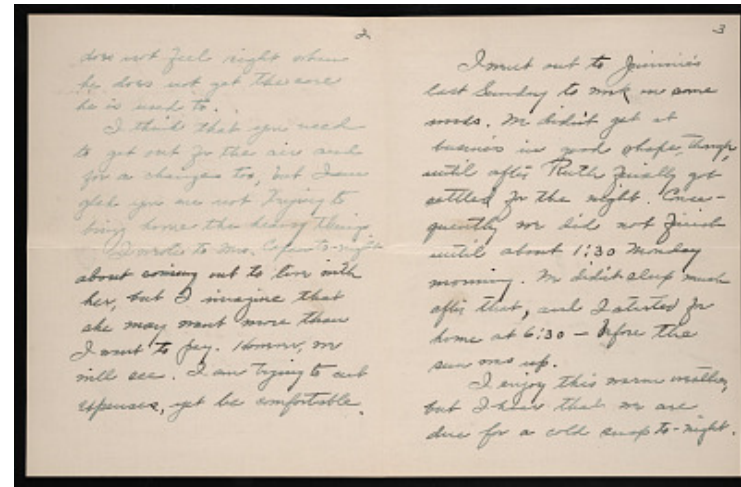 2
does not feel right when
he does not get the care
he is used to.
I think that you need
to get out for the air and
for a change too, but I am
glad you are not trying to
bring home the heavy things.
I wrote to Mrs. to-night
about coming out to live with
her, but I imagine that
she may want more than
I want to pay. However, we
will see. I am trying to cut
expenses, yet be comfortable.
3
I went out to Jimmie's
last Sunday to work on some
words. We didn't get at
business in good shape, though,
until after Ruth finally got
settled for the night. Conse-
quently we did not finish
until about 1:30 Monday
morning. We didn't sleep much
after that, and I started for
home at 6:30 — before the
sun was up.
I enjoy this warm weather,
but I hear that we are
due for a cold snap to-night.